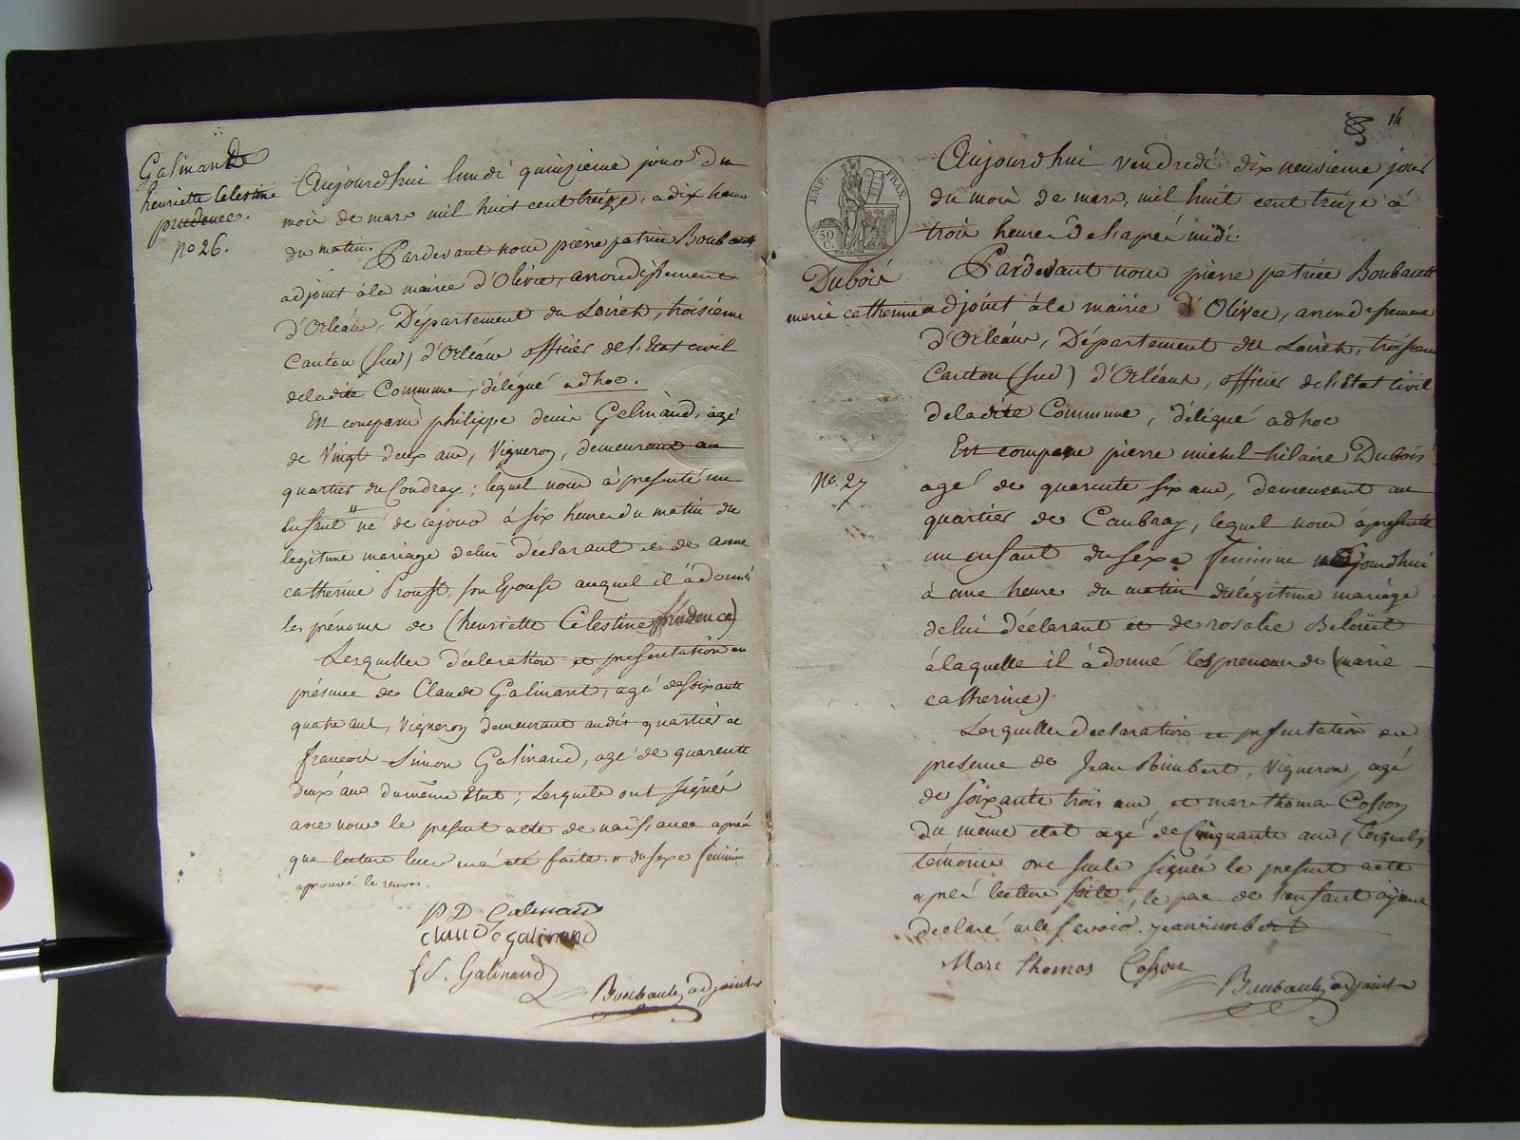 Galinand
henriette Celestine
prudence.
no 26.
Aujourdhui lundi quinzieme jour du
mois de mars mil huit cent treize, a dix heures
du matin. Pardevant nous pierre patrice Boubault
adjoint à la mairie d'Olivet, arrondissement
d'Orléans, Département du Loiret, troisiéme
Canton (sud) d'Orléans officier de l'Etat civil
de ladite Commune, délégué adhoc.
Est comparu philippe denis Galinand, agé
de Vingt deux ans, Vigneron, demeurant au
quartier du Coudray; lequel nous à presenté un
Enfant " né de cejour à six heures du matin du
legitime mariage delui déclarant et de anne
catherine Proust, son Epouse auquel il à donné
les prénoms de (henriette Celestine prudence)
Lesquelles déclaration et presentation en
présence de Claude Galinant, agé desoixante
quatre ans, Vigneron demeurant audit quartier et
francois Simon Galinand, agé de quarente
deux ans dumême Etat; Lesquels ont signés
avec nous le present acte de naissance aprés
que lecture leur en à été faite. " du sexe feminin
aprouvé le renvoi.
P D Galinand
claude galinand
f S. Galinand
Boubault, adjoint
14
EMP. FRAN.
50 C.
Dubois
marie catherine
No. 27
Aujourdhui vendredi dix neuvieme jour
du mois de mars, mil huit cent treize à
trois heures de l'aprés midi.
Pardevant nous pierre patrice Boubault
adjoint à la mairie d'Olivet, arrondissement
d'Orléans, Département du Loiret, troisieme
Canton (sud) d'Orléans, officier de l'Etat Civil
deladite Commune, délégué adhoc
Est comparu pierre michel hilaire Dubois
agé de quarente six ans, demeurant au
quartier de Caubray, lequel nous à présenté
un enfant du sexe feminin né aujourdhui
à une heure du matin du légitime mariage
delui déclarant et de rosalie
à laquelle il à donné les prenoms de (marie
catherine).
Lesquelles declaration et presentation en
presence de Jean Rimbert, Vigneron, agé
de soixante trois ans et marc thomas Cosson
du même etat agé de Cinquante ans, lesquels
témoins ont seuls signés le present acte
aprés lecture faite, le pere de l'enfant ayant
declaré ne le savoir. jean rimbert
Marc thomas Cosson
Boubault, adjoint